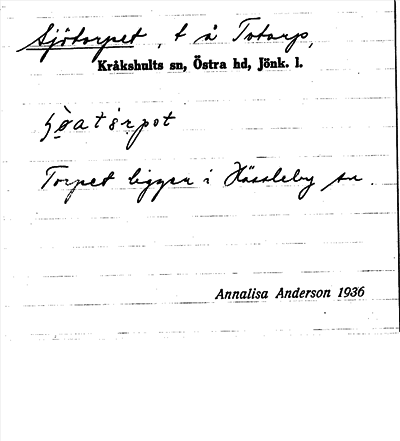 Sjötorpet, t å Totarp,
Kråkshults sn, Östra hd, Jönk. l.
Torpet ligger i Hässleby sn.
Annalisa Anderson 1936